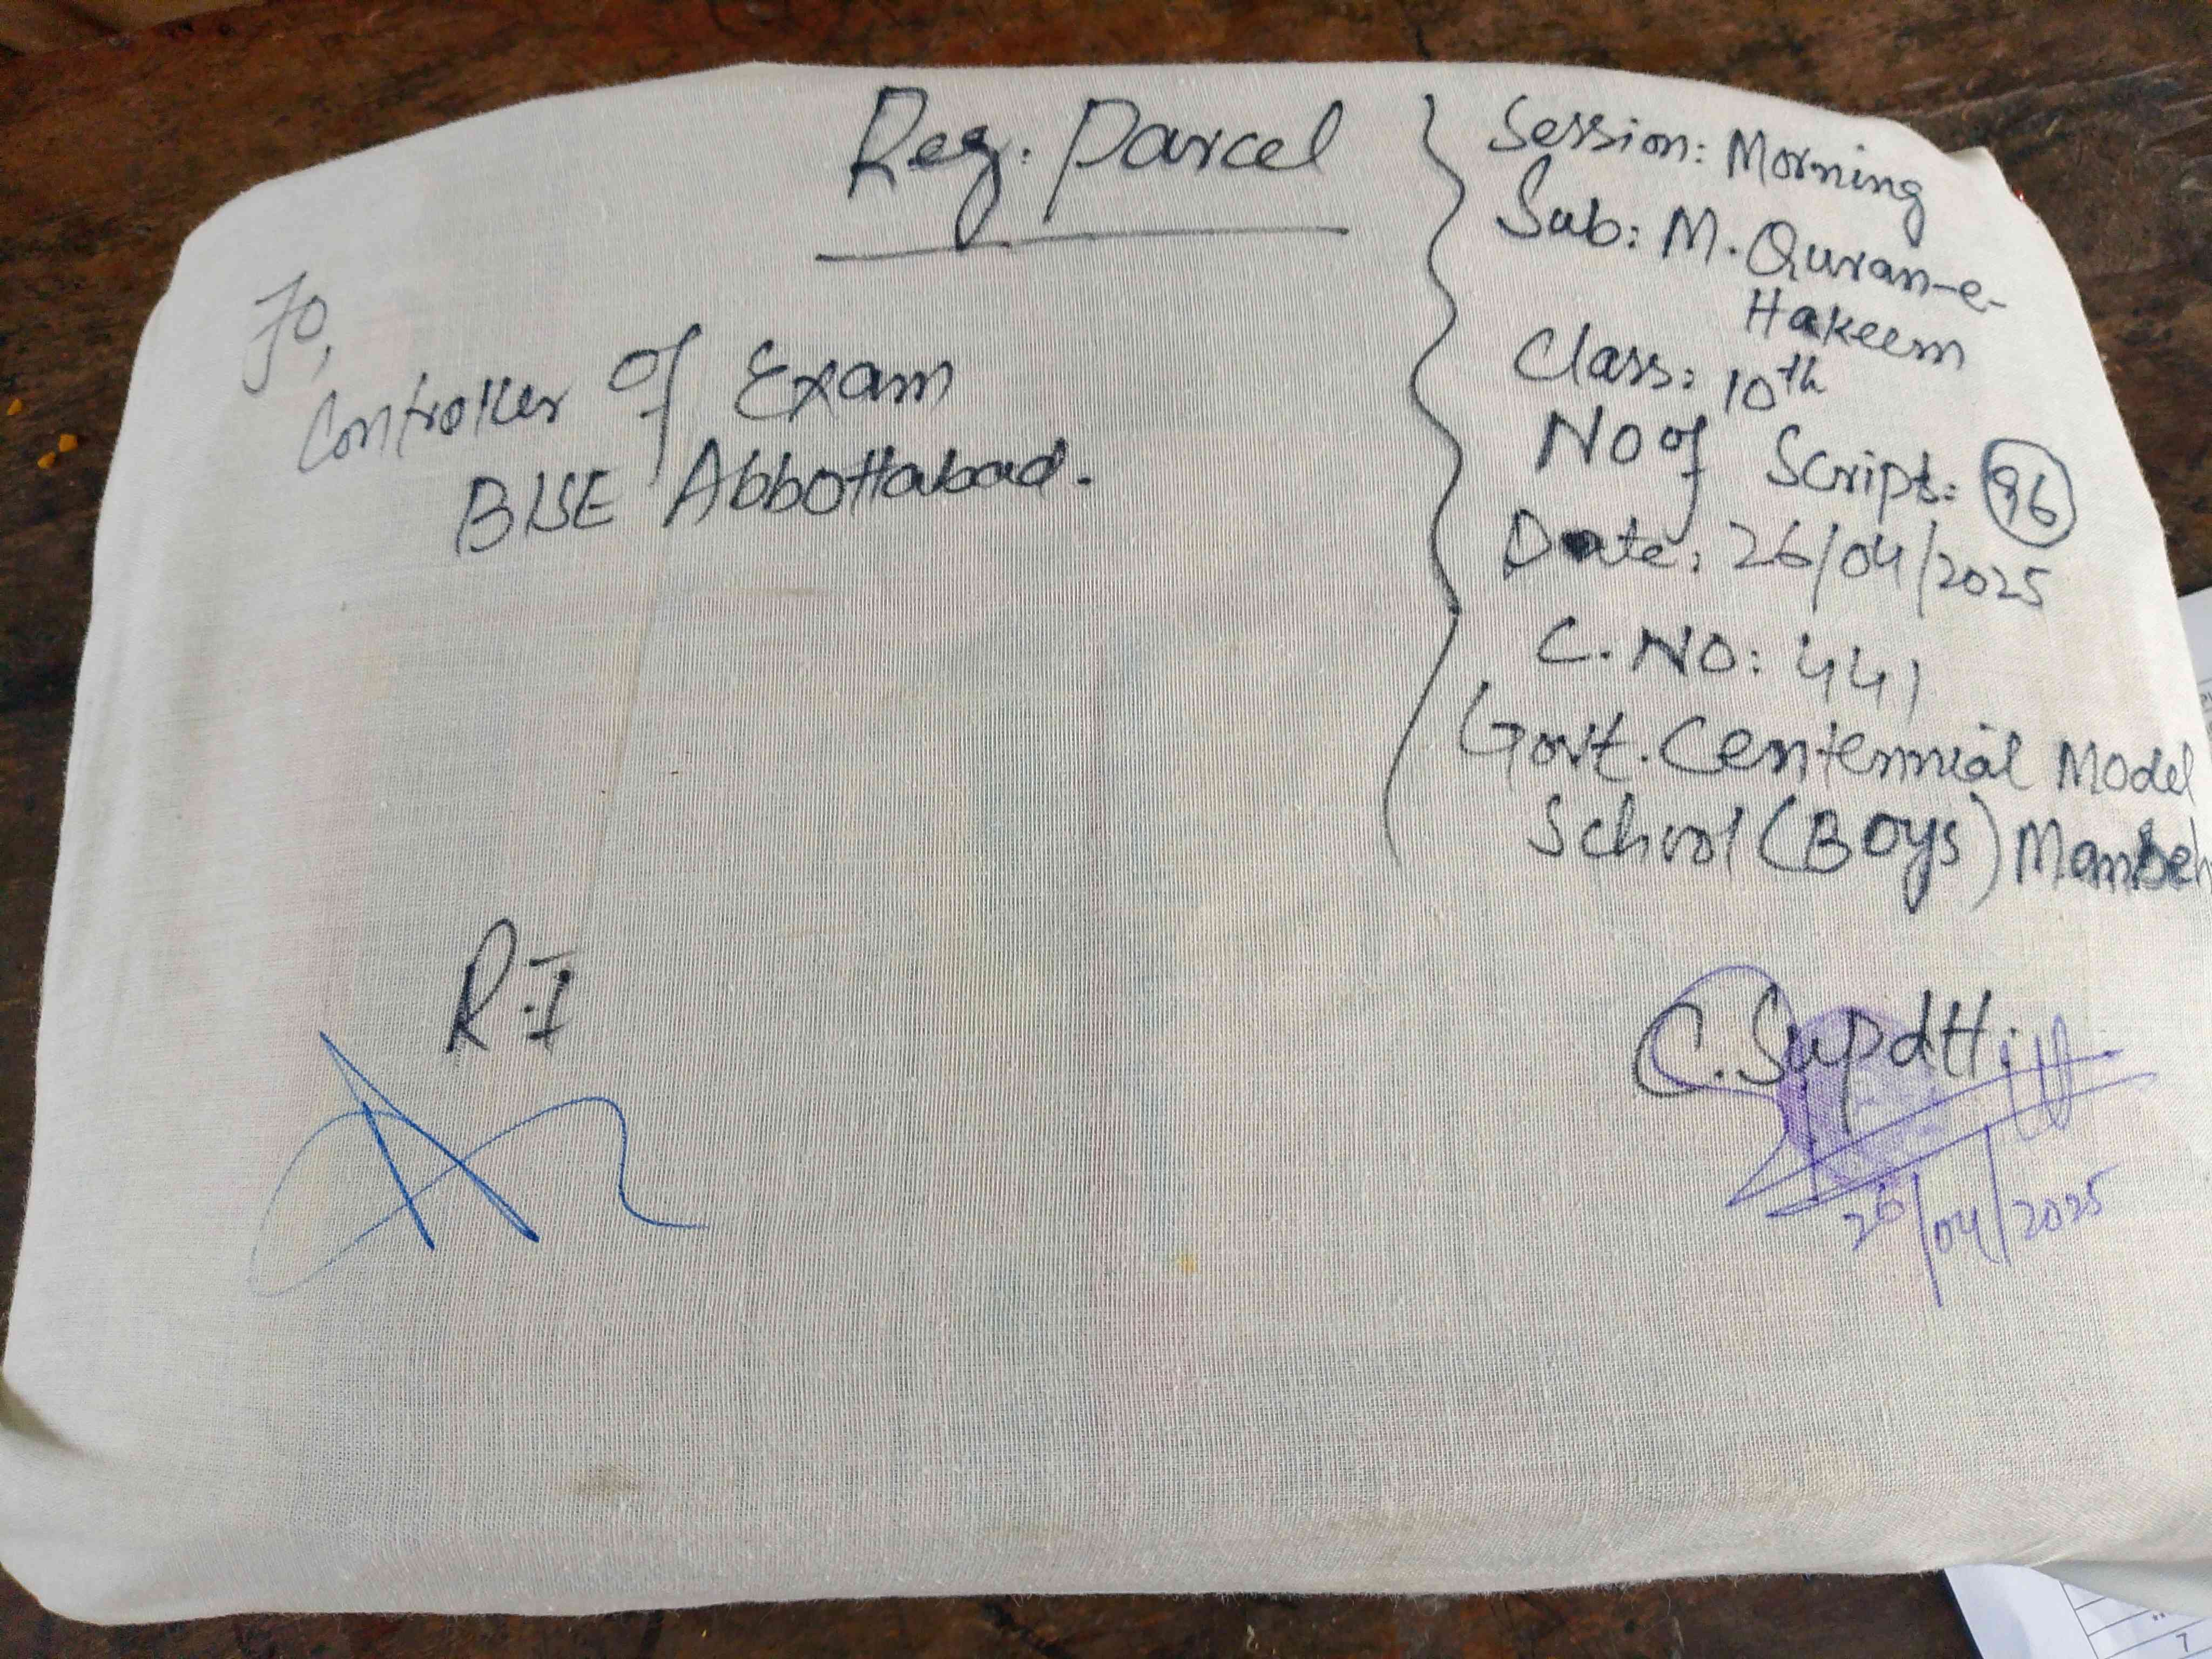 Reg. Parcel
To,
Controller of Exam
BISE Abbottabad.
Session: Morning
Sub: M. Quran-e-
Hakeem
Class: 10th
No of Script: 96
Date: 26/04/2025
C. NO: 441
Govt. Centennial Model
School (Boys)
R.I
C. Supdtt:
26/04/2025